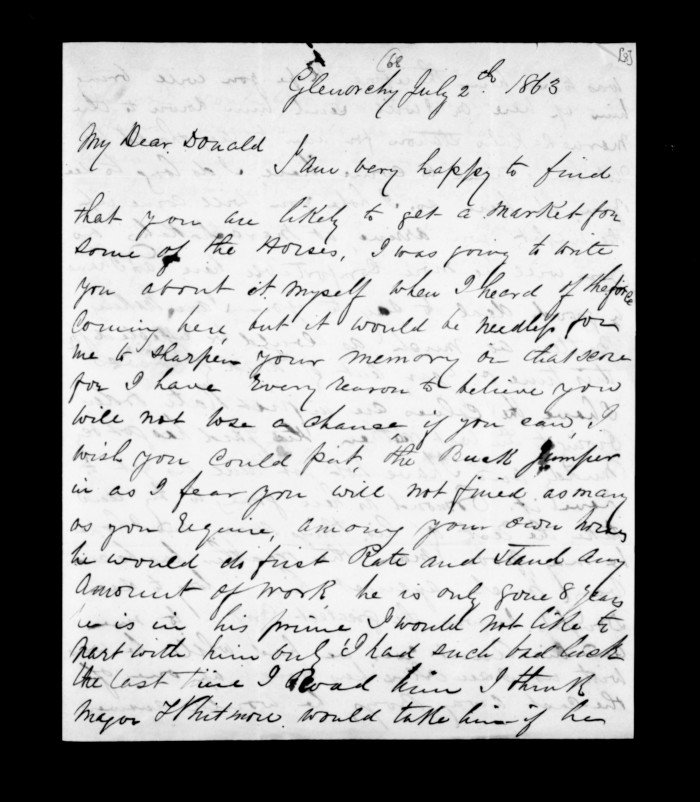 68
Glenorchy July 2th 1863
My Dear Donald
I am very happy to find
that you are likely to get a market for
some of the Horses, I was going to write
you about it myself when I heard of the force
coming here, but it would be needless for
me to sharpen your memory on that score
for I have every reason to believe you
will not lose a chance if you can, I
wish you could put the Buck Jumper
in as I fear you will not find as many
as you require, among your own
he would do first Rate and stand any
amount of work he is only gone 8 years
is in his prime I would not like to
part with him only I had such bad luck
the last time I Road him I think
Major Whitmore would take him if he